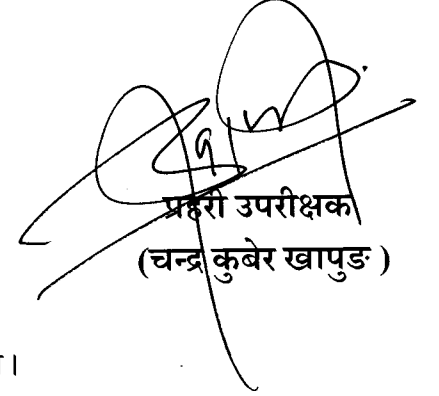 प्रहरी उपरीक्षक
(चन्द्र कुबेर खापुङ )